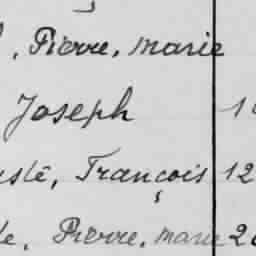 , Pierre, marie
Joseph
, François 12
, Pierre, marie